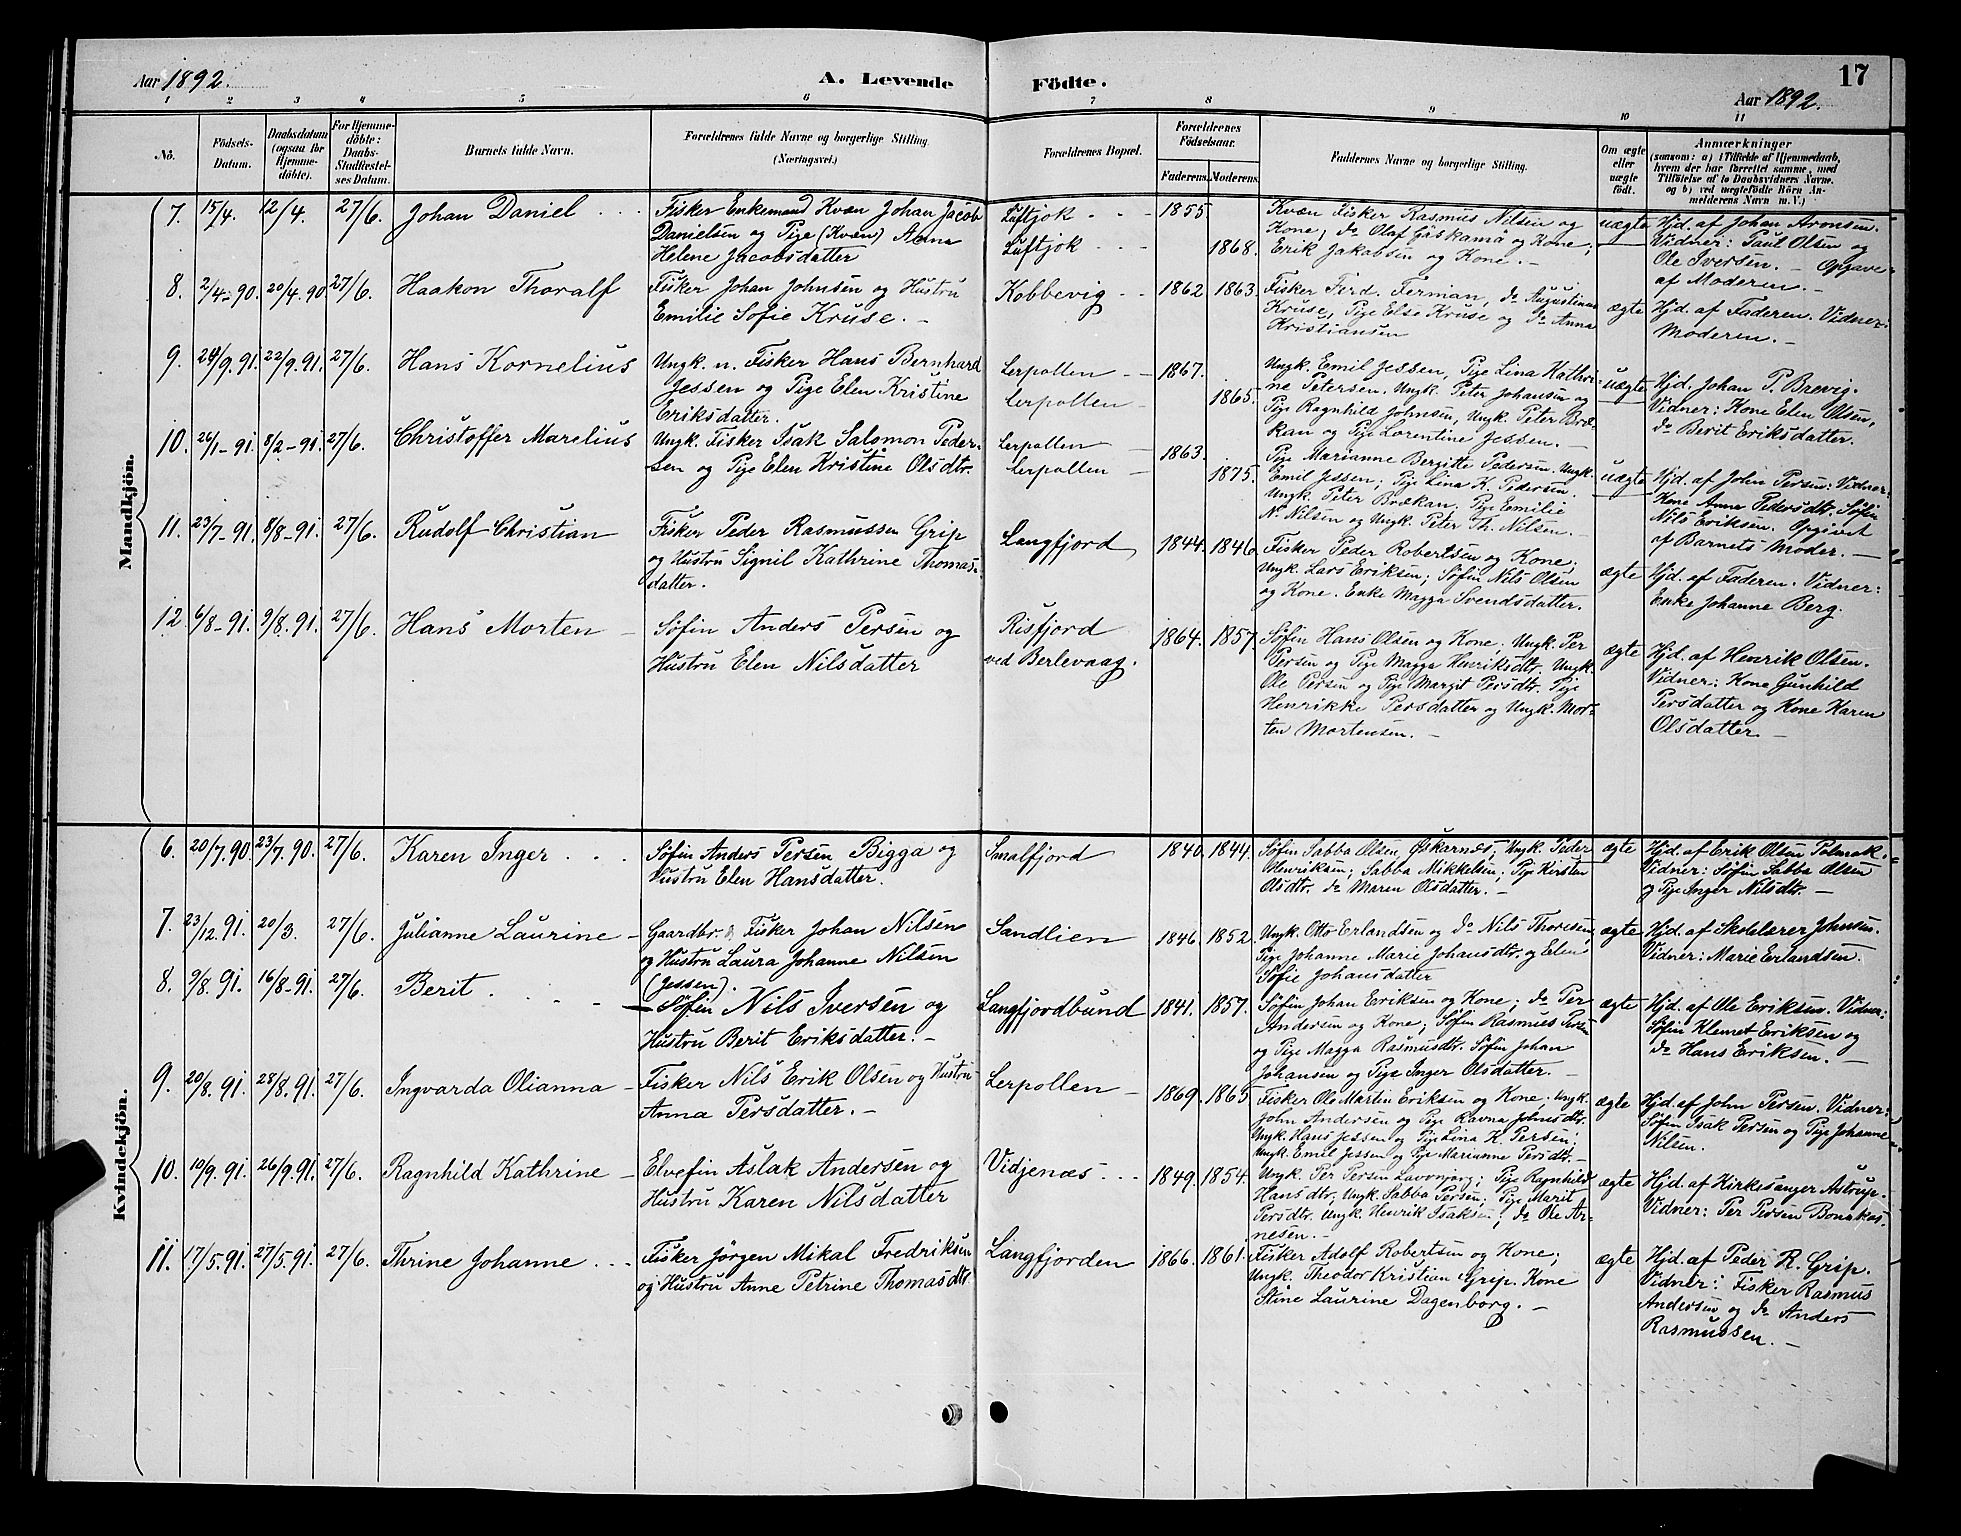 Aar 1892.
A. Levende
Födte.
17
Aar 1892.
1 2 3 4 5 6 7 8 9 10 11
No.
Födsels-
Datum.
Daabsdatum
(ogsaa for
Hjemme-
döbte).
For Hjemme-
döbte:
Daabs-
Stadfæstel-
ses Datum.
Barnets fulde Navn.
Forældrenes fulde Navne og borgerlige Stilling
(Næringsvei.)
Forældrenes Bopæl.
Forældrenes
Födselsaar.
Faderens. Moderens.
Faddernes Navne og borgerlige Stilling.
Om ægte
eller
uægte
födt.
Anmærkninger
(saasom: a) i Tilfælde af Hjemmedaab,
hvem der har forrettet samme, med
Tilföielse af to Daabsvidners Navne,
og b) ved uægtefödte Börn An-
melderens Navn m. V.)
Mandkjön.
7. 15/4. 12/4. 27/6. Johan Daniel
Fisker Enkemand Kvæn Johan Jacob
Danielsen og Pige (Kvæn) Anna
Helene Jacobsdatter
Luftjok
Luftjok
1855.
1868.
Kvæn Fisker Rasmus Nilsen og
Kone, do Olaf Gäskamä og Kone;
Erik Jakobsen og Kone. —
uægte
Hjd. af Johan Aronsen.
Vidner: Paul Olsen og
Ole Iversen. — Opgave
af Moderen. —
8. 2/4-90. 20/4.90. 27/6. Haakon Thoralf
Fisker Johan Johnsen og Hustru
Emilie Sofie Kruse. —
Kobbevig
1862 1863.
Fisker Ferd. Ferman, do Augustinus
Kruse, Pige Else Kruse og do Anna
Kristiansen
ægte
Hjd. af Faderen. Vidner:
Moderen. —
9. 24/9.91. 22/9.91. 27/6. Hans Kornelius
Ungk. n. Fisker Hans Bernhard
Jessen og Pige Elen Kristine
Eriksdatter.
Lerpollen
Lerpollen
1867.
1865.
Ungk. Emil Jessen, Pige Lina Kathri-
ne Petersen. Ungk. Peter Johansen og
Pige Ragnhild Johnsen, Ungk. Peter Bræ-
kan og Pige Lorentine Jessen.
uægte
Hjd. Johan P. Brevig.
Vidner: Kone Elen Olsen,
do Berit Eriksdatter.
10. 26/1-91. 8/2-91. 27/6. Christoffer Marelius
Ungk. Fisker Isak Salomon Peder-
sen og Pige Elen Kristine Olsdtr.
Lerpollen
Lerpollen
1863.
1875.
Pige Marianne Bergitte Pedersen. Ungk.
Emil Jessen; Pige Lina K. Pedersen.
Ungk. Peter Brækan, Pige Emilie
N. Nilsen og Ungk. Peter Th. Nilsen.
uægte
Hjd. af John Persen: Vidner:
Kone Anne Pedersdtr. Søfin
Nils Eriksen. Opgivet
af Barnets Moder. —
11. 23/7-91. 8/8-91. 27/6. Rudolf Christian
Fisker Peder Rasmussen Grip
og Hustru Signil Kathrine Thomas-
datter.
Langfjord
1844. 1846.
Fisker Peder Robertsen og Kone;
Ungk. Lars Eriksen; Søfin Nils Olsen
og Kone. Enke Magga Svendsdatter.
ægte
Hjd. af Faderen. Vidner:
Enke Johanne Berg.
12. 6/8-91. 9/8.91. 27/6. Hans Morten
Søfin Anders Persen og
Hustru Elen Nilsdatter
Risfjord
ved Berlevaag.
1864. 1857.
Søfin Hans Olsen og Kone; Ungk. Per
Persen og Pige Magga Henriksdtr. Ungk.
Ole Persen og Pige Margit Persdtr. Pige
Henrikke Persdatter og Ungk. Mor-
ten Mortensen. —
ægte
Hjd. af Henrik Olsen.
Vidner: Kone Gunhild
Persdatter og Kone Karen
Olsdatter —
Kvindekjön.
6. 20/7.90. 23/7.90. 27/6. Karen Inger
Søfin Anders Persen Bigga og
Hustru Elen Hansdatter.
Smalfjord
1840. 1844.
Søfin Sabba Olsen Øskarnæs; Ungk. Peder
Henriksen; Sabba Mikkelsen; Pige Kirsten
Olsdtr. do Maren Olsdatter. —
ægte
Hjd. af Erik Olsen Polmak.
Vidner: Søfin Sabba Olsen
og Pige Inger Nilsdtr. —
7. 23/12.91. 20/3. 27/6. Julianne Laurine
Gaardbr. & Fisker Johan Nilsen
og Hustru Laura Johanne Nilsen
(Jessen).
Sandlien
1846. 1852.
Ungk. Otto Erlandsen og do Nils Thoresen
Pige Johanne Marie Johansdtr. og Elen
Sofie Johansdatter
ægte
Hjd. af Skolelærer Johnsen.
Vidner: Marie Erlandsen.
8. 9/8.91. 16/8-91. 27/6. Berit
Søfin Nils Iversen og
Hustru Berit Eriksdatter. —
Langfjordbund
1841. 1857.
Søfin Johan Eriksen og Kone; do Per
Andersen og Kone; Søfin Rasmus Persen
og Pige Magga Rasmusdtr. Søfin Johan
Johansen og Pige Inger Olsdatter. —
ægte
Hjd. af Ole Eriksen. Vidner:
Søfin Klemet Eriksen og
do Hans Eriksen. —
9. 20/8.91. 28/8.91. 27/6. Ingvarda Olianna
Fisker Nils Erik Olsen og Hustru
Anna Persdatter. —
Lerpollen
1869. 1865
Fisker Ole Martin Eriksen og Kone. Ungk.
John Andersen og Pige Ravna Johnsdtr.
Ungk. Hans Jessen og Pige Lina K. Persen;
Ungk. Emil Jessen og Pige Marianne Persdtr. —
ægte
Hjd. af John Persen. Vidner:
Søfin Isak Persen og Pige Johanne
Nilsen.
10. 19/9.91. 26/9.91. 27/6. Ragnhild Kathrine
Elvefin Aslak Andersen og
Hustru Karen Nilsdatter
Vidjenæs
1849. 1854.
Ungk. Per Persen Lavonjarg; Pige Ragnhild
Hansdtr, Ungk. Sabba Persen; Pige Marit
Persdtr. Ungk. Henrik Isaksen; do Ole Ar-
nesen. —
ægte
Hjd. af Kirkesanger Astrup.
Vidner: Per Persen Bonakas.
11. 17/5.91. 27/5.91. 27/6. Thrine Johanne
Fisker Jörgen Mikal Fredriksen
og Hustru Anne Petrine Thomasdtr.
Langfjorden
1866. 1861.
Fisker Adolf Robertsen og Kone;
Ungk. Theodor Kristian Grip. Kone
Stine Laurine Dagenborg. —
ægte
Hjd. af Peder R. Grip.
Vidner: Fisker Rasmus
Andersen og do Anders
Rasmussen. —